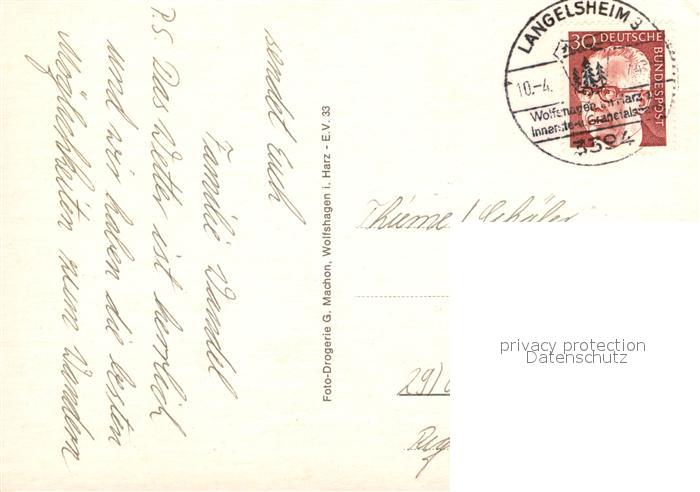 sendet Euch
Familie Wandel
P.S. Das Wetter ist herrlich
und wir haben die besten
Möglichkeiten zum Wandern
Foto-Drogerie G. Machon, Wolfshagen i. Harz - E.V. 33
LANGELSHEIM 3
10.-4.
Wolfshagen Harz
Innerste-
3394
30 DEUTSCHE
BUNDESPOST
Thieme / Schüler
29
privacy protection
Datenschutz